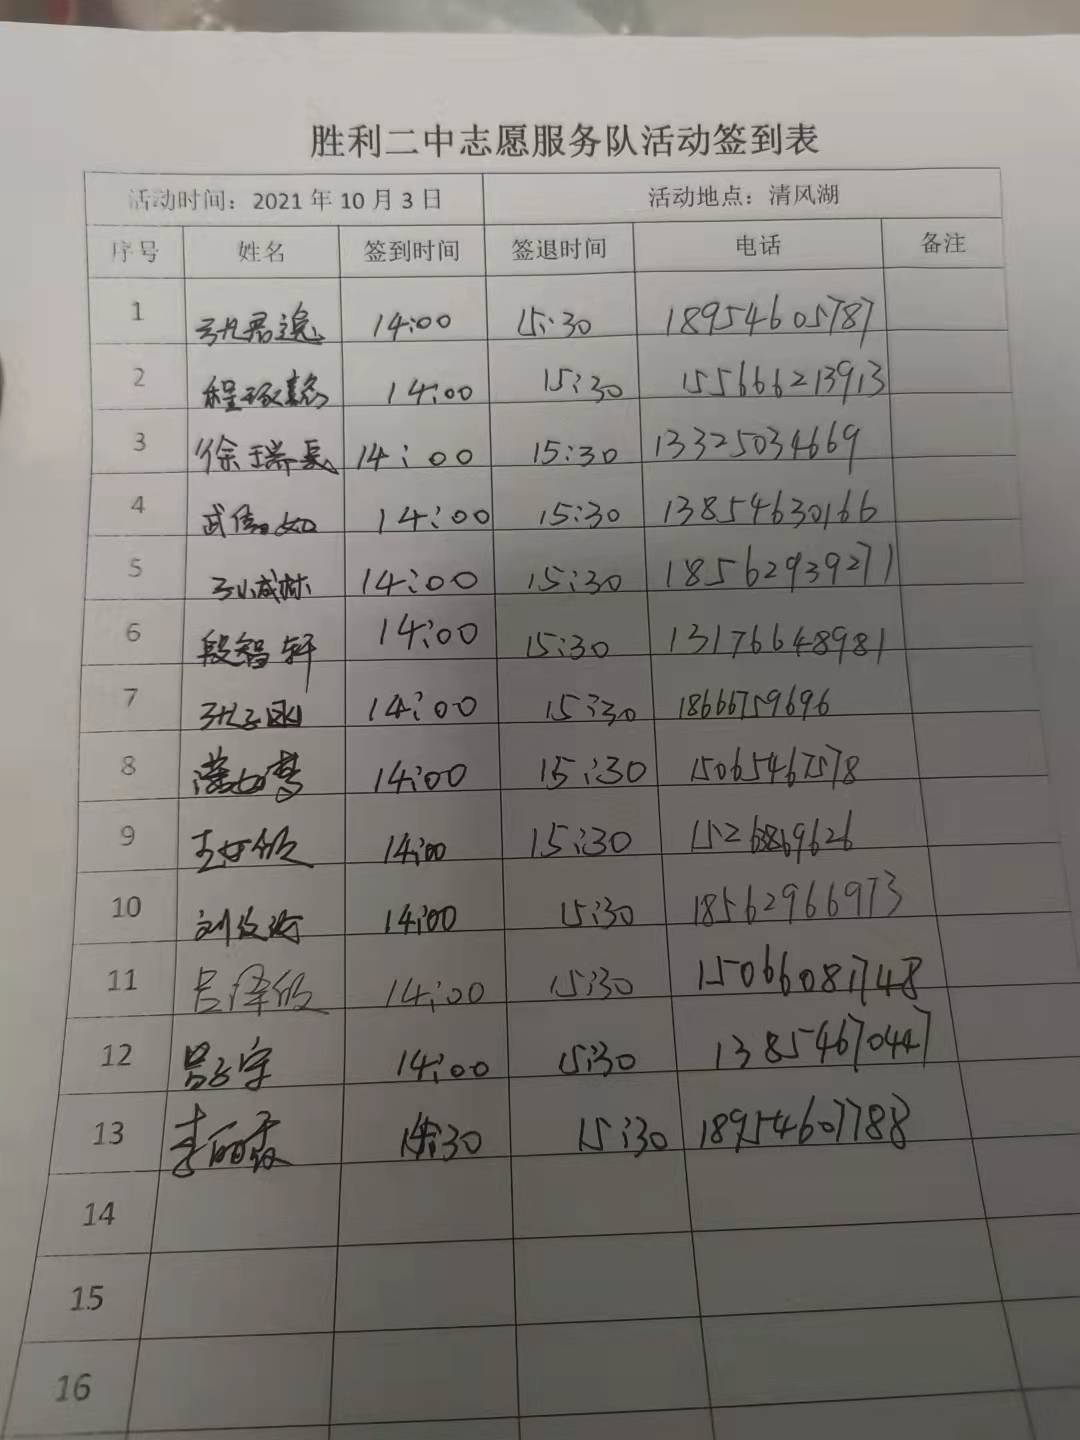 胜利二中志愿服务队活动签到表
活动时间：2021 年 10 月 3 日 活动地点：清风湖
序号 姓名 签到时间 签退时间 电话 备注
1 张君逸 14:00 15:30 18954605787
2 程琢懿 14:00 15:30 15566621 3913
3 徐瑞 14:00 15:30 13325034669
4 武倩如 14:00 15:30 13854630166
5 孙成林 14:00 15:30 18562939271
6 段智轩 14:00 15:30 13176648981
7 张子 14:00 15:30 18666759696
8 梦 14:00 15:30 15065467578
9 王欣 14:00 15:30 15263869626
10 刘 14:00 15:30 18562966973
11 吕泽欣 14:00 15:30 15066081748
12 吕子宇 14:00 15:30 13854670447
13 李雨霏 14:30 15:30 18954607788
14
15
16